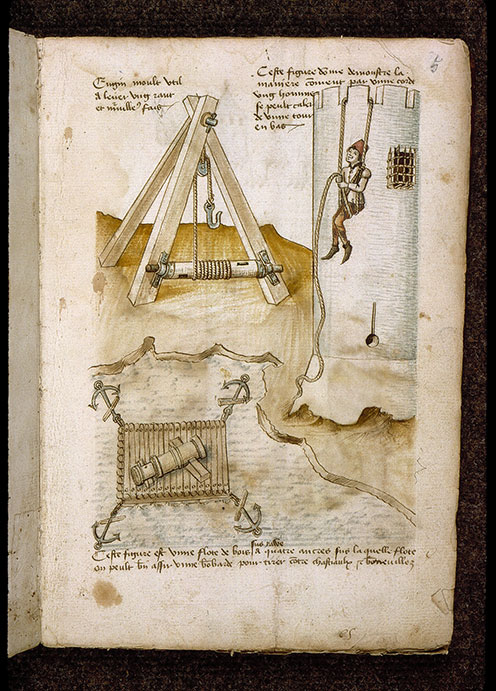 Engin moult util
a lever ung faut
et merveilleux fais
Ceste figure donne demonstre la
maniere coment par vnne corde
vng homme
se peult caler
de vnne tour
en bas
5
Ceste figure est vnne flote de bois a quatre ancres sus la quelle flote
on peult bn assir vnne bobarde pour tirer contre chastiaulx